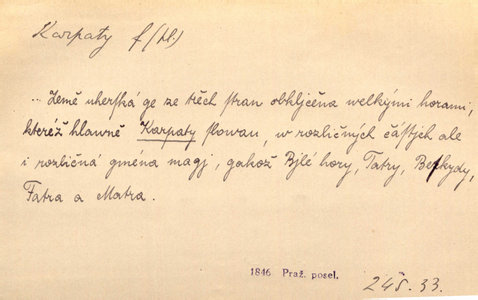 Karpaty f (pl.)
... Země uherská ge ze třech stran obkljčena welkými horami,
kteréž hlawně Karpaty slowau, w rozličných částjch ale
i rozličná gména magj, gakož Bjlé hory, Tatry, Beskydy,
Fatra a Matra.
1846 Praž. posel.
33.